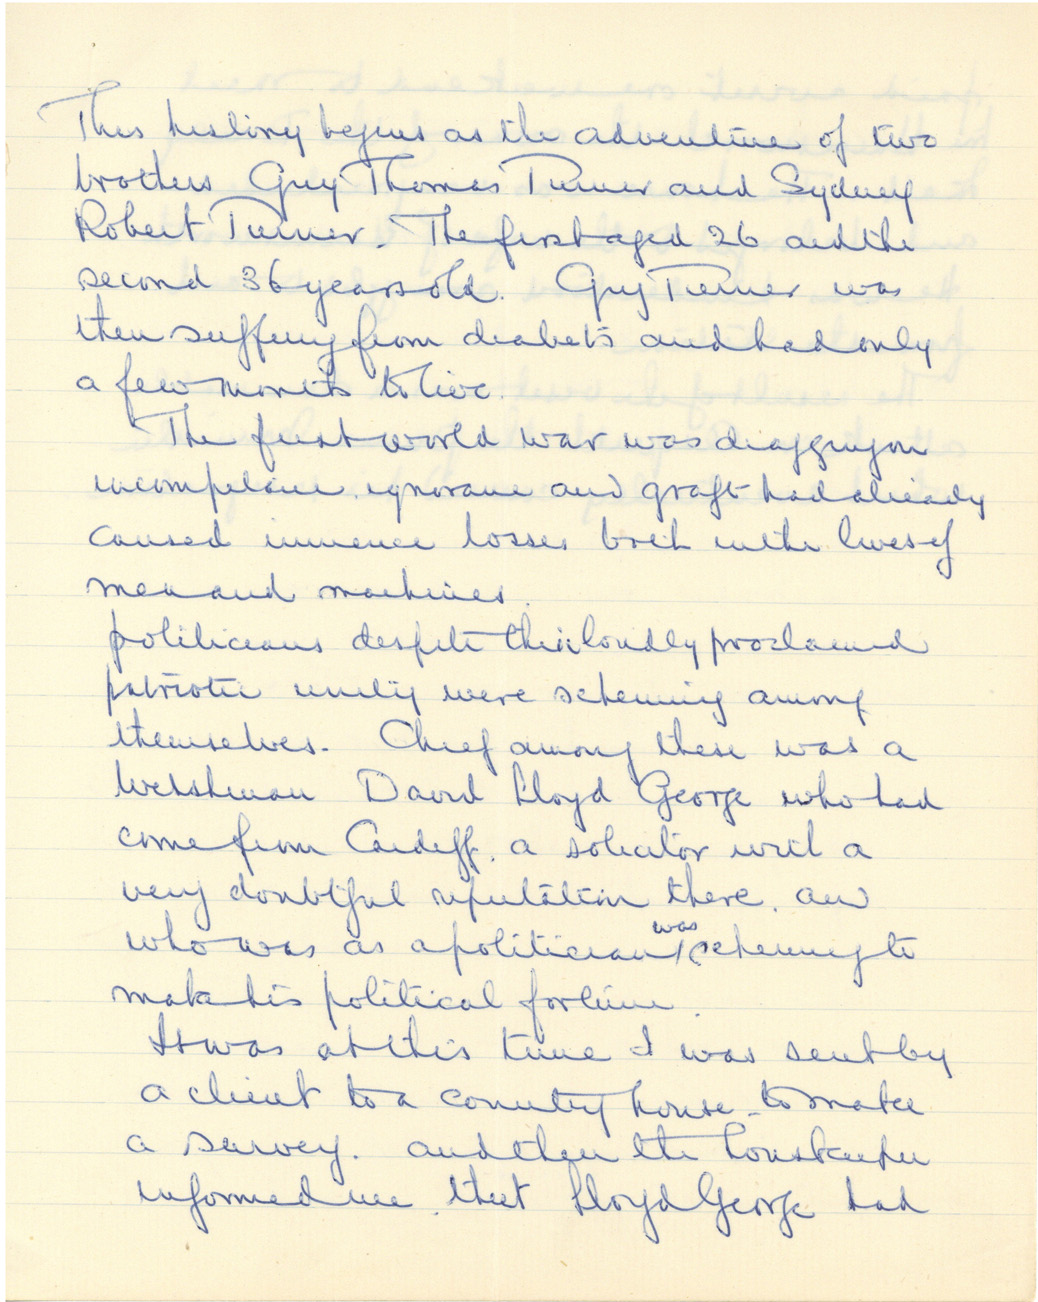 This history begins as the adventure of two
brothers Guy Thomas Turner and Sydney
Robert Turner. The first aged 26 and the
second 36 years old. Guy Turner was
then suffering from diabetis and had only
a few months to live.
The first world war was dragging on
incompetence, ignorance and graft had already
caused immence losses both in the lives of
men and machines.
politicians despite their loudly proclaimed
patriotic unity were scheming among
themselves. Chief among these was a
Welshman David Lloyd George who had
come from Cardiff, a solicitor with a
very doubtful reputation there. and
who was as a politician was scheming to
make his political fortune.
It was at this time I was sent by
a client to a country house - to make
a survey. and then the houskeeper
informed me, that Lloyd George had